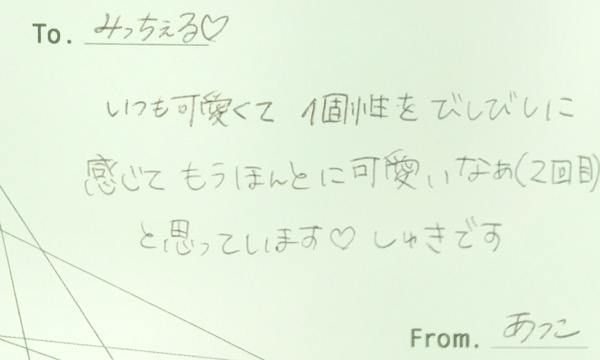 To. みっちぇる♡
いつも可愛くて 個性をびしびしに
感じて もうほんとに可愛いなぁ(2回目)
と思っています♡ しゅきです
From. あっこ